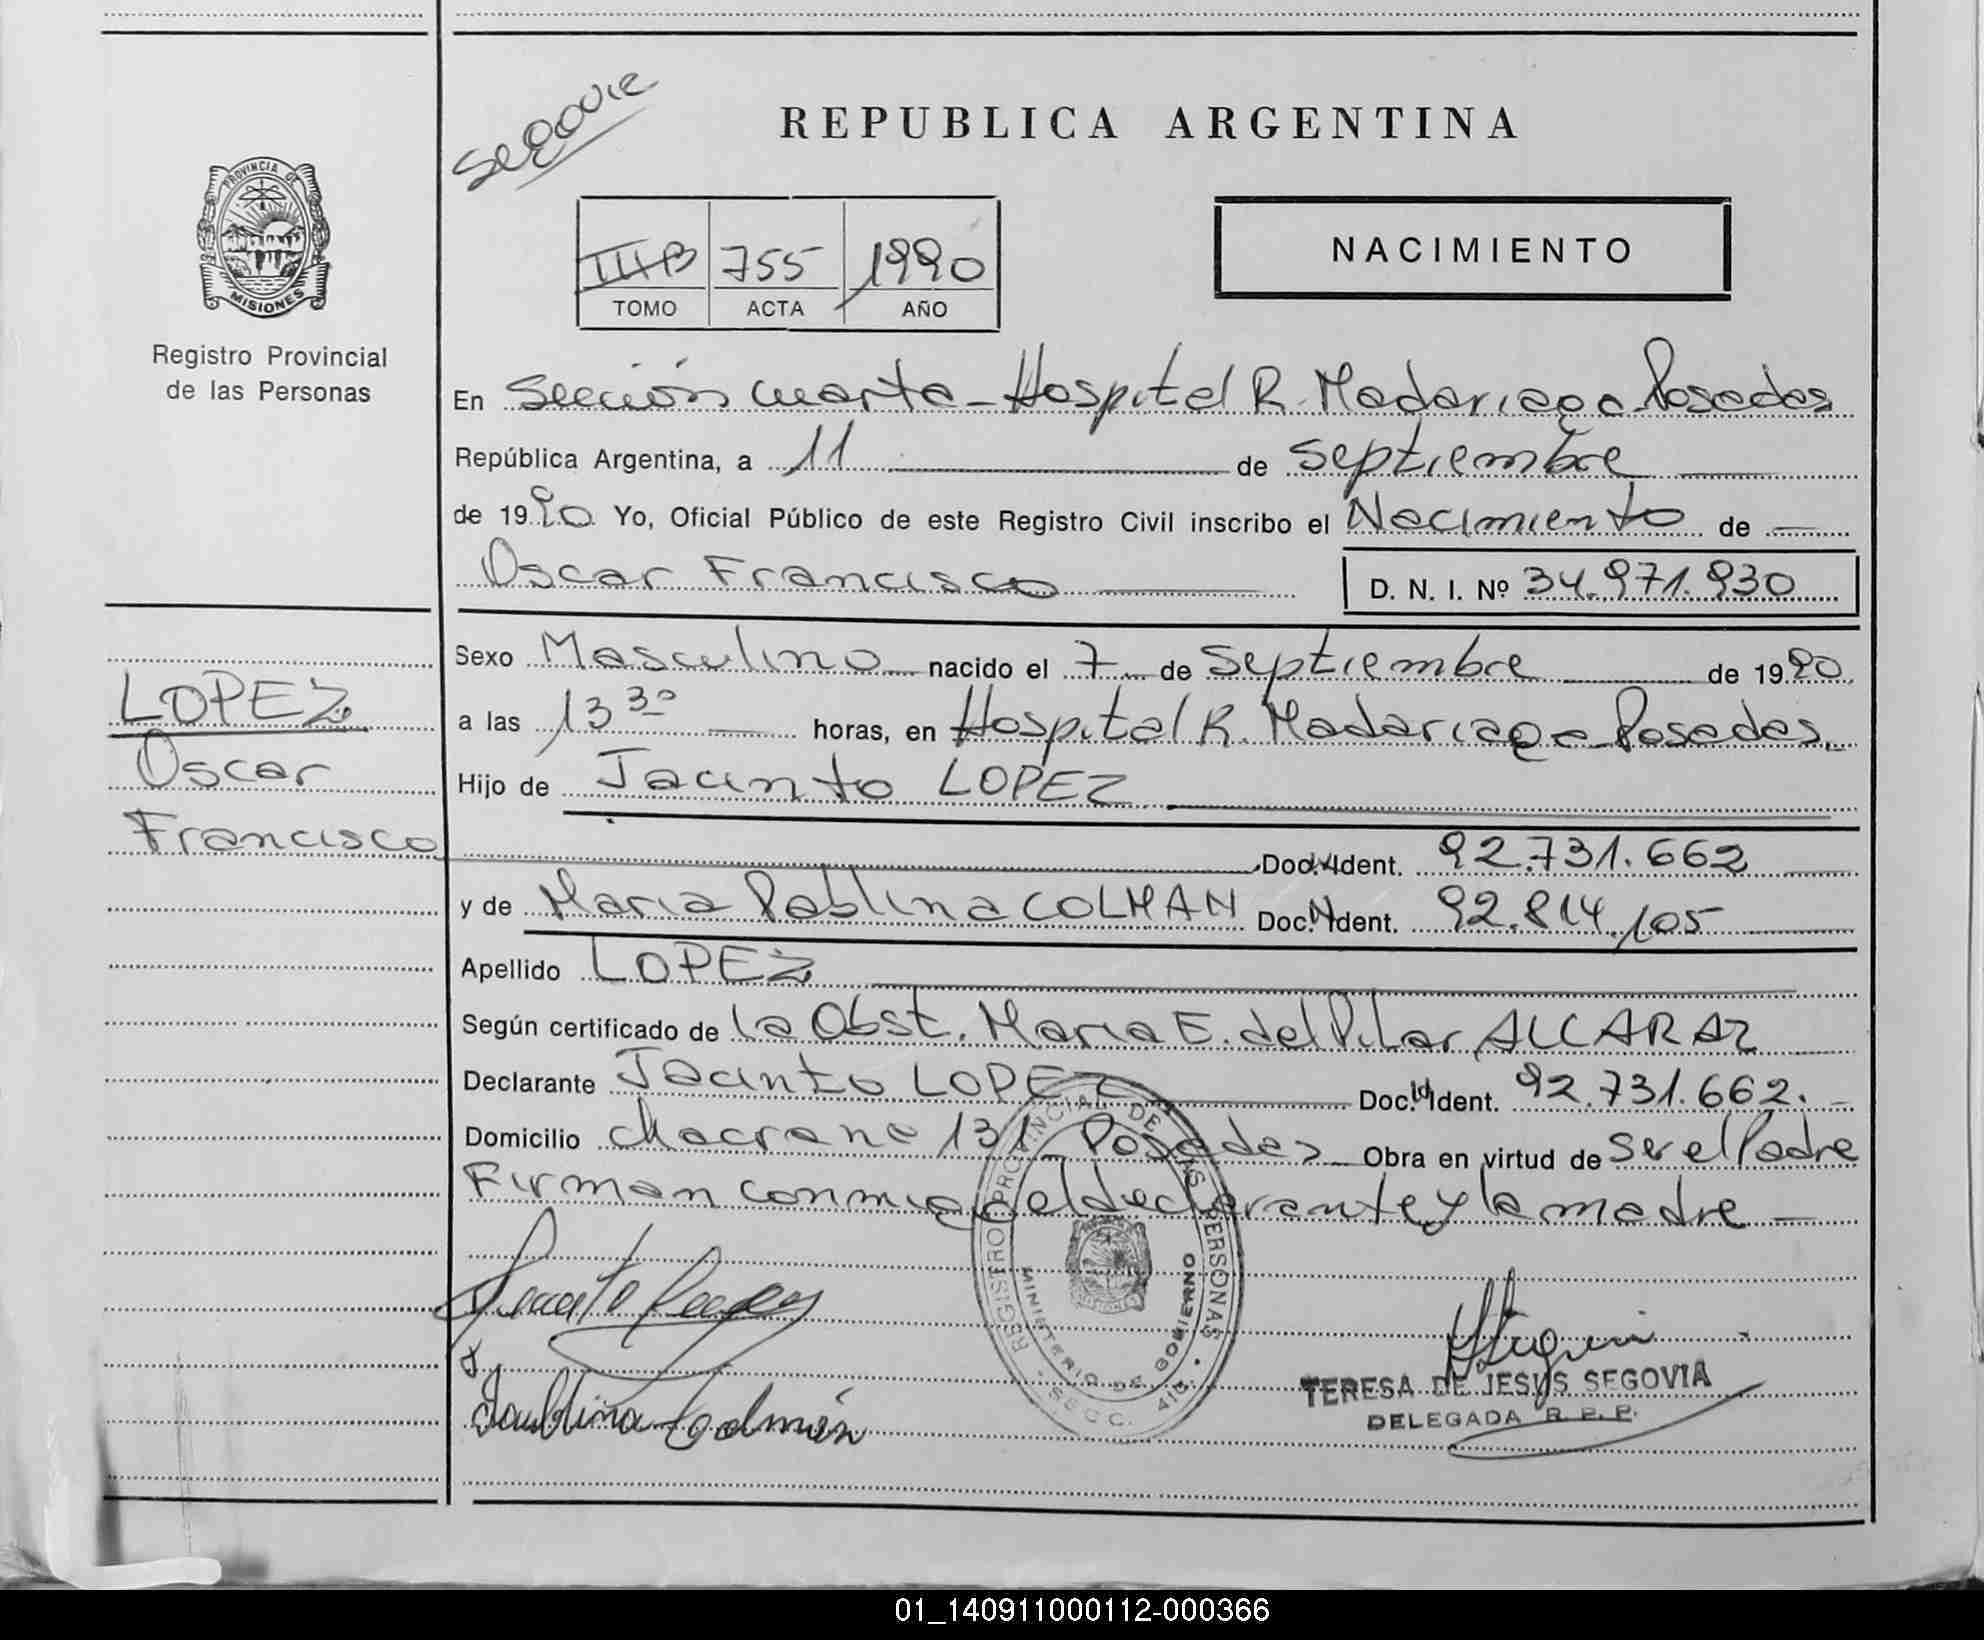 Segovia
REPUBLICA ARGENTINA
PROVINCIA DE
MISIONES
Registro Provincial
de las Personas
III B 755 1990
TOMO ACTA AÑO
NACIMIENTO
En Sección cuarta - Hospital R. Madariaga - Posadas
República Argentina, a 11 de septiembre
de 1990 Yo, Oficial Público de este Registro Civil inscribo el Nacimiento de
Oscar Francisco D. N. I. Nº 34.971.930
Sexo Masculino nacido el 7 de Septiembre de 1990
a las 13 30 horas, en Hospital R. Madariaga - Posadas.
Hijo de Jacinto LOPEZ
Doc. Ident. 92.731.662
y de Maria Pablina COLMAN Doc. Ident. 92.814.105
Apellido LOPEZ
Según certificado de la Obst. Maria E. del Pilar ALCARAZ
Declarante Jacinto LOPEZ Doc. Ident. 92.731.662.
Domicilio Chacra no 131 - Posadas Obra en virtud de Ser el Padre
Firman conmigo el declarante y la madre
LOPEZ
Oscar
Francisco
REGISTRO PROVINCIAL DE LAS PERSONAS
MINISTERIO DE GOBIERNO
SECC. 4ta.
MISIONES
TERESA DE JESUS SEGOVIA
DELEGADA R. P. P.
01_140911000112-000366